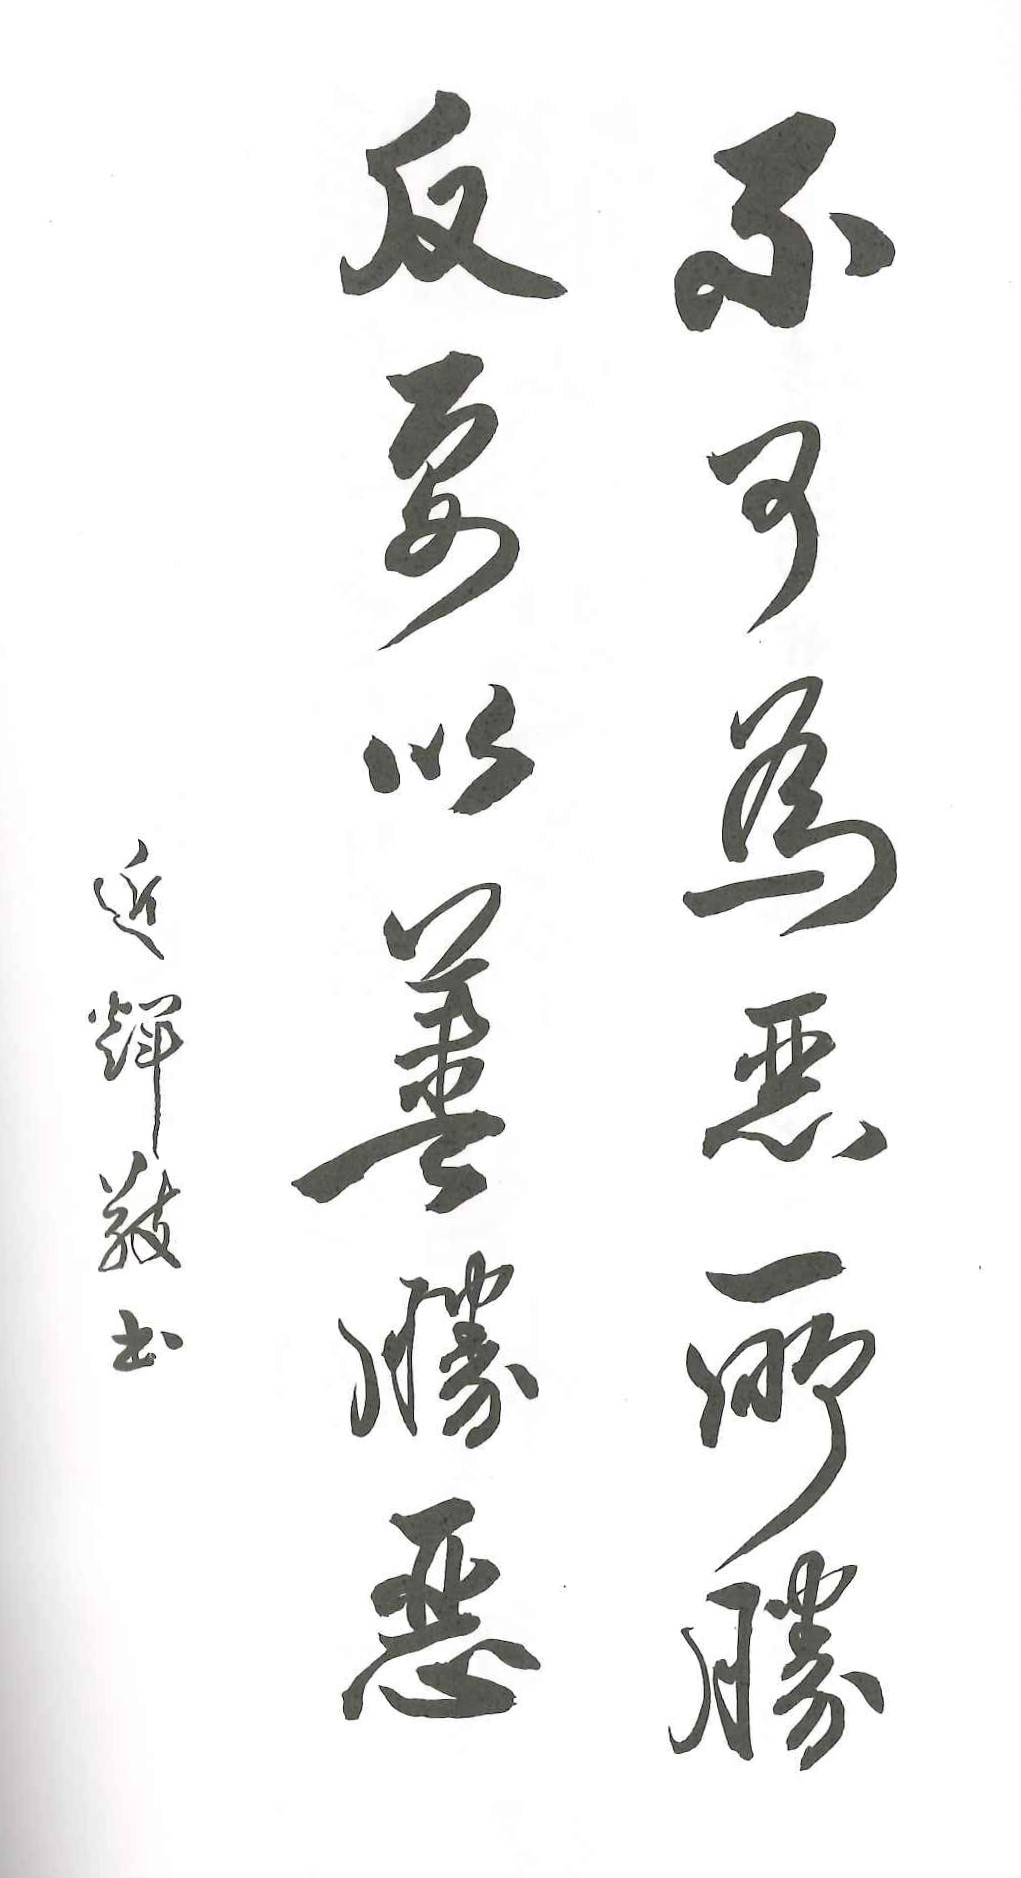 不可為惡所勝
反要以善勝惡
近輝敬书